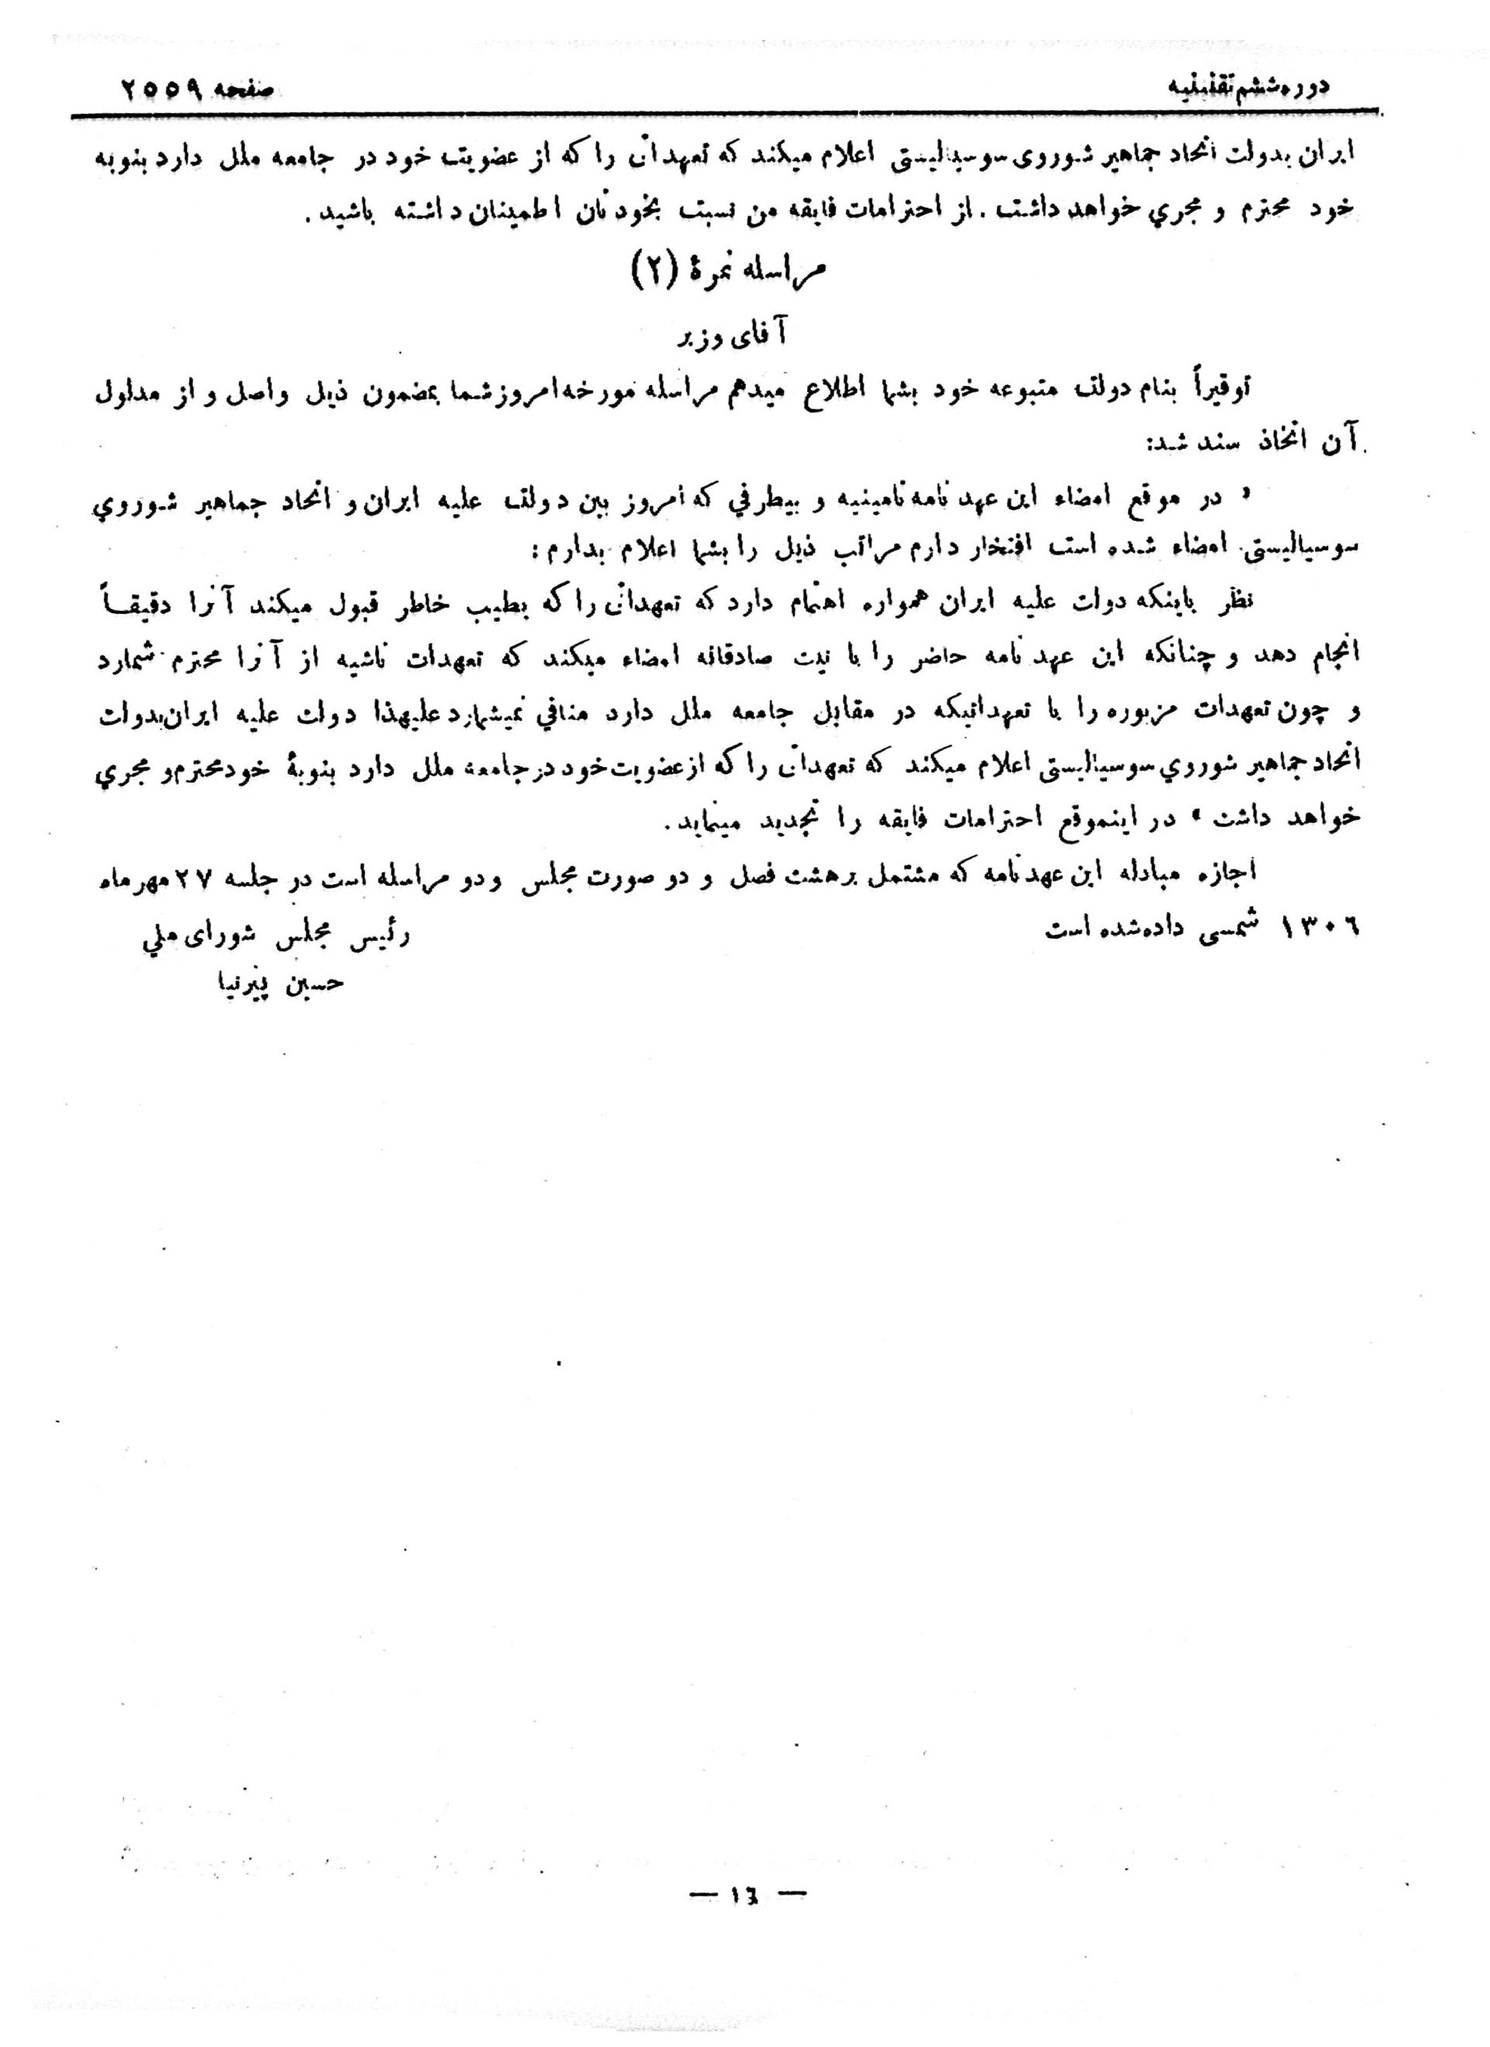 دوره ششم تقنینیه
صفحه ۲۵۵۹
ایران بدولت اتحاد جماهیر شوروی سوسیالیستی اعلام میکند که تعهداتی را که از عضویت خود در جامعه ملل دارد بنوبه
خود محترم و مجری خواهد داشت . از احترامات فایقه من نسبت بخودتان اطمینان داشته باشید .
مراسله نمرهٔ (۲)
آقای وزیر
توقیراً بنام دولت متبوعه خود بشما اطلاع میدهم مراسله مورخه امروز شما بمضمون ذیل واصل و از مدلول
آن اتخاذ سند شد:
« در موقع امضاء این عهد نامه تامینیه و بیطرفی که امروز بین دولت علیه ایران و اتحاد جماهیر شوروی
سوسیالیستی امضاء شده است افتخار دارم مراتب ذیل را بشما اعلام بدارم :
نظر باینکه دولت علیه ایران همواره اهتمام دارد که تعهداتی را که بطیب خاطر قبول میکند آنرا دقیقاً
انجام دهد و چنانکه این عهد نامه حاضر را با نیت صادقانه امضاء میکند که تعهدات ناشیه از آنرا محترم شمارد
و چون تعهدات مزبوره را با تعهداتیکه در مقابل جامعه ملل دارد منافی نمیشمارد علیهذا دولت علیه ایران بدولت
اتحاد جماهیر شوروی سوسیالیستی اعلام میکند که تعهداتی را که از عضویت خود در جامعه ملل دارد بنوبهٔ خود محترم و مجری
خواهد داشت » در اینموقع احترامات فایقه را تجدید مینماید.
اجازه مبادله این عهدنامه که مشتمل بر هشت فصل و دو صورت مجلس و دو مراسله است در جلسه ۲۷ مهر ماه
۱۳۰۶ شمسی داده شده است
رئیس مجلس شورای ملی
حسین پیرنیا
— ۱٦ —